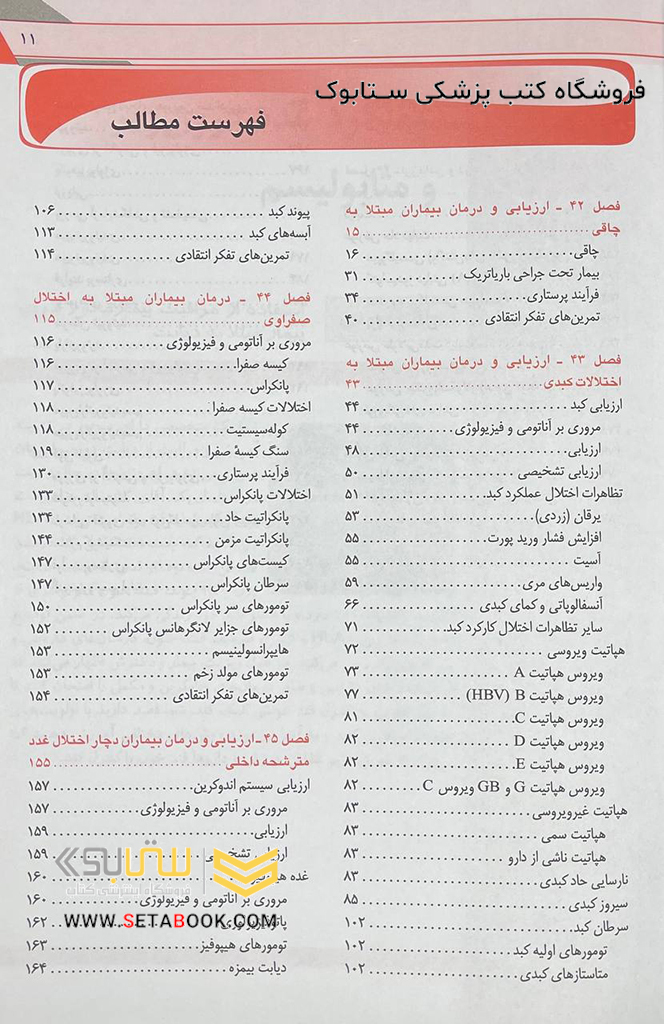 ۱۱
فروشگاه کتب پزشکی ستابوک
فهرست مطالب
فصل ۴۲ - ارزیابی و درمان بیماران مبتلا به
چاقی ........ ۱۵
چاقی ........ ۱۶
بیمار تحت جراحی باریاتریک ........ ۳۱
فرآیند پرستاری ........ ۳۴
تمرین‌های تفکر انتقادی ........ ۴۰
فصل ۴۳ - ارزیابی و درمان بیماران مبتلا به
اختلالات کبدی ........ ۴۳
ارزیابی کبد ........ ۴۴
مروری بر آناتومی و فیزیولوژی ........ ۴۴
ارزیابی ........ ۴۸
ارزیابی تشخیصی ........ ۵۰
تظاهرات اختلال عملکرد کبد ........ ۵۱
یرقان (زردی) ........ ۵۳
افزایش فشار ورید پورت ........ ۵۵
آسیت ........ ۵۵
واریس‌های مری ........ ۵۹
آنسفالوپاتی و کمای کبدی ........ ۶۶
سایر تظاهرات اختلال کارکرد کبد ........ ۷۱
هپاتیت ویروسی ........ ۷۲
ویروس هپاتیت A ........ ۷۳
ویروس هپاتیت B (HBV) ........ ۷۷
ویروس هپاتیت C ........ ۸۱
ویروس هپاتیت D ........ ۸۲
ویروس هپاتیت E ........ ۸۲
ویروس هپاتیت G و GB ویروس C ........ ۸۲
هپاتیت غیرویروسی ........ ۸۳
هپاتیت سمی ........ ۸۳
هپاتیت ناشی از دارو ........ ۸۳
نارسایی حاد کبدی ........ ۸۳
سیروز کبدی ........ ۸۵
سرطان کبد ........ ۱۰۲
تومورهای اولیه کبد ........ ۱۰۲
متاستازهای کبدی ........ ۱۰۲
پیوند کبد ........ ۱۰۶
آبسه‌های کبد ........ ۱۱۳
تمرین‌های تفکر انتقادی ........ ۱۱۴
فصل ۴۴ - درمان بیماران مبتلا به اختلال
صفراوی ........ ۱۱۵
مروری بر آناتومی و فیزیولوژی ........ ۱۱۶
کیسه صفرا ........ ۱۱۶
پانکراس ........ ۱۱۷
اختلالات کیسه صفرا ........ ۱۱۸
کوله‌سیستیت ........ ۱۱۸
سنگ کیسهٔ صفرا ........ ۱۱۹
فرآیند پرستاری ........ ۱۳۰
اختلالات پانکراس ........ ۱۳۳
پانکراتیت حاد ........ ۱۳۴
پانکراتیت مزمن ........ ۱۴۴
کیست‌های پانکراس ........ ۱۴۷
سرطان پانکراس ........ ۱۴۷
تومورهای سر پانکراس ........ ۱۵۰
تومورهای جزایر لانگرهانس پانکراس ........ ۱۵۲
هایپرانسولینیسم ........ ۱۵۳
تومورهای مولد زخم ........ ۱۵۳
تمرین‌های تفکر انتقادی ........ ۱۵۴
فصل ۴۵ - ارزیابی و درمان بیماران دچار اختلال غدد
مترشحه داخلی ........ ۱۵۵
ارزیابی سیستم اندوکرین ........ ۱۵۷
مروری بر آناتومی و فیزیولوژی ........ ۱۵۷
ارزیابی ........ ۱۵۹
ارزیابی تشخیصی ........ ۱۵۹
غده ........ ۱۶۰
مروری بر آناتومی و فیزیولوژی ........ ۱۶۰
........ ۱۶۲
تومورهای هیپوفیز ........ ۱۶۳
دیابت بیمزه ........ ۱۶۴
ستابوک
فروشگاه اینترنتی کتاب
WWW.SETABOOK.COM